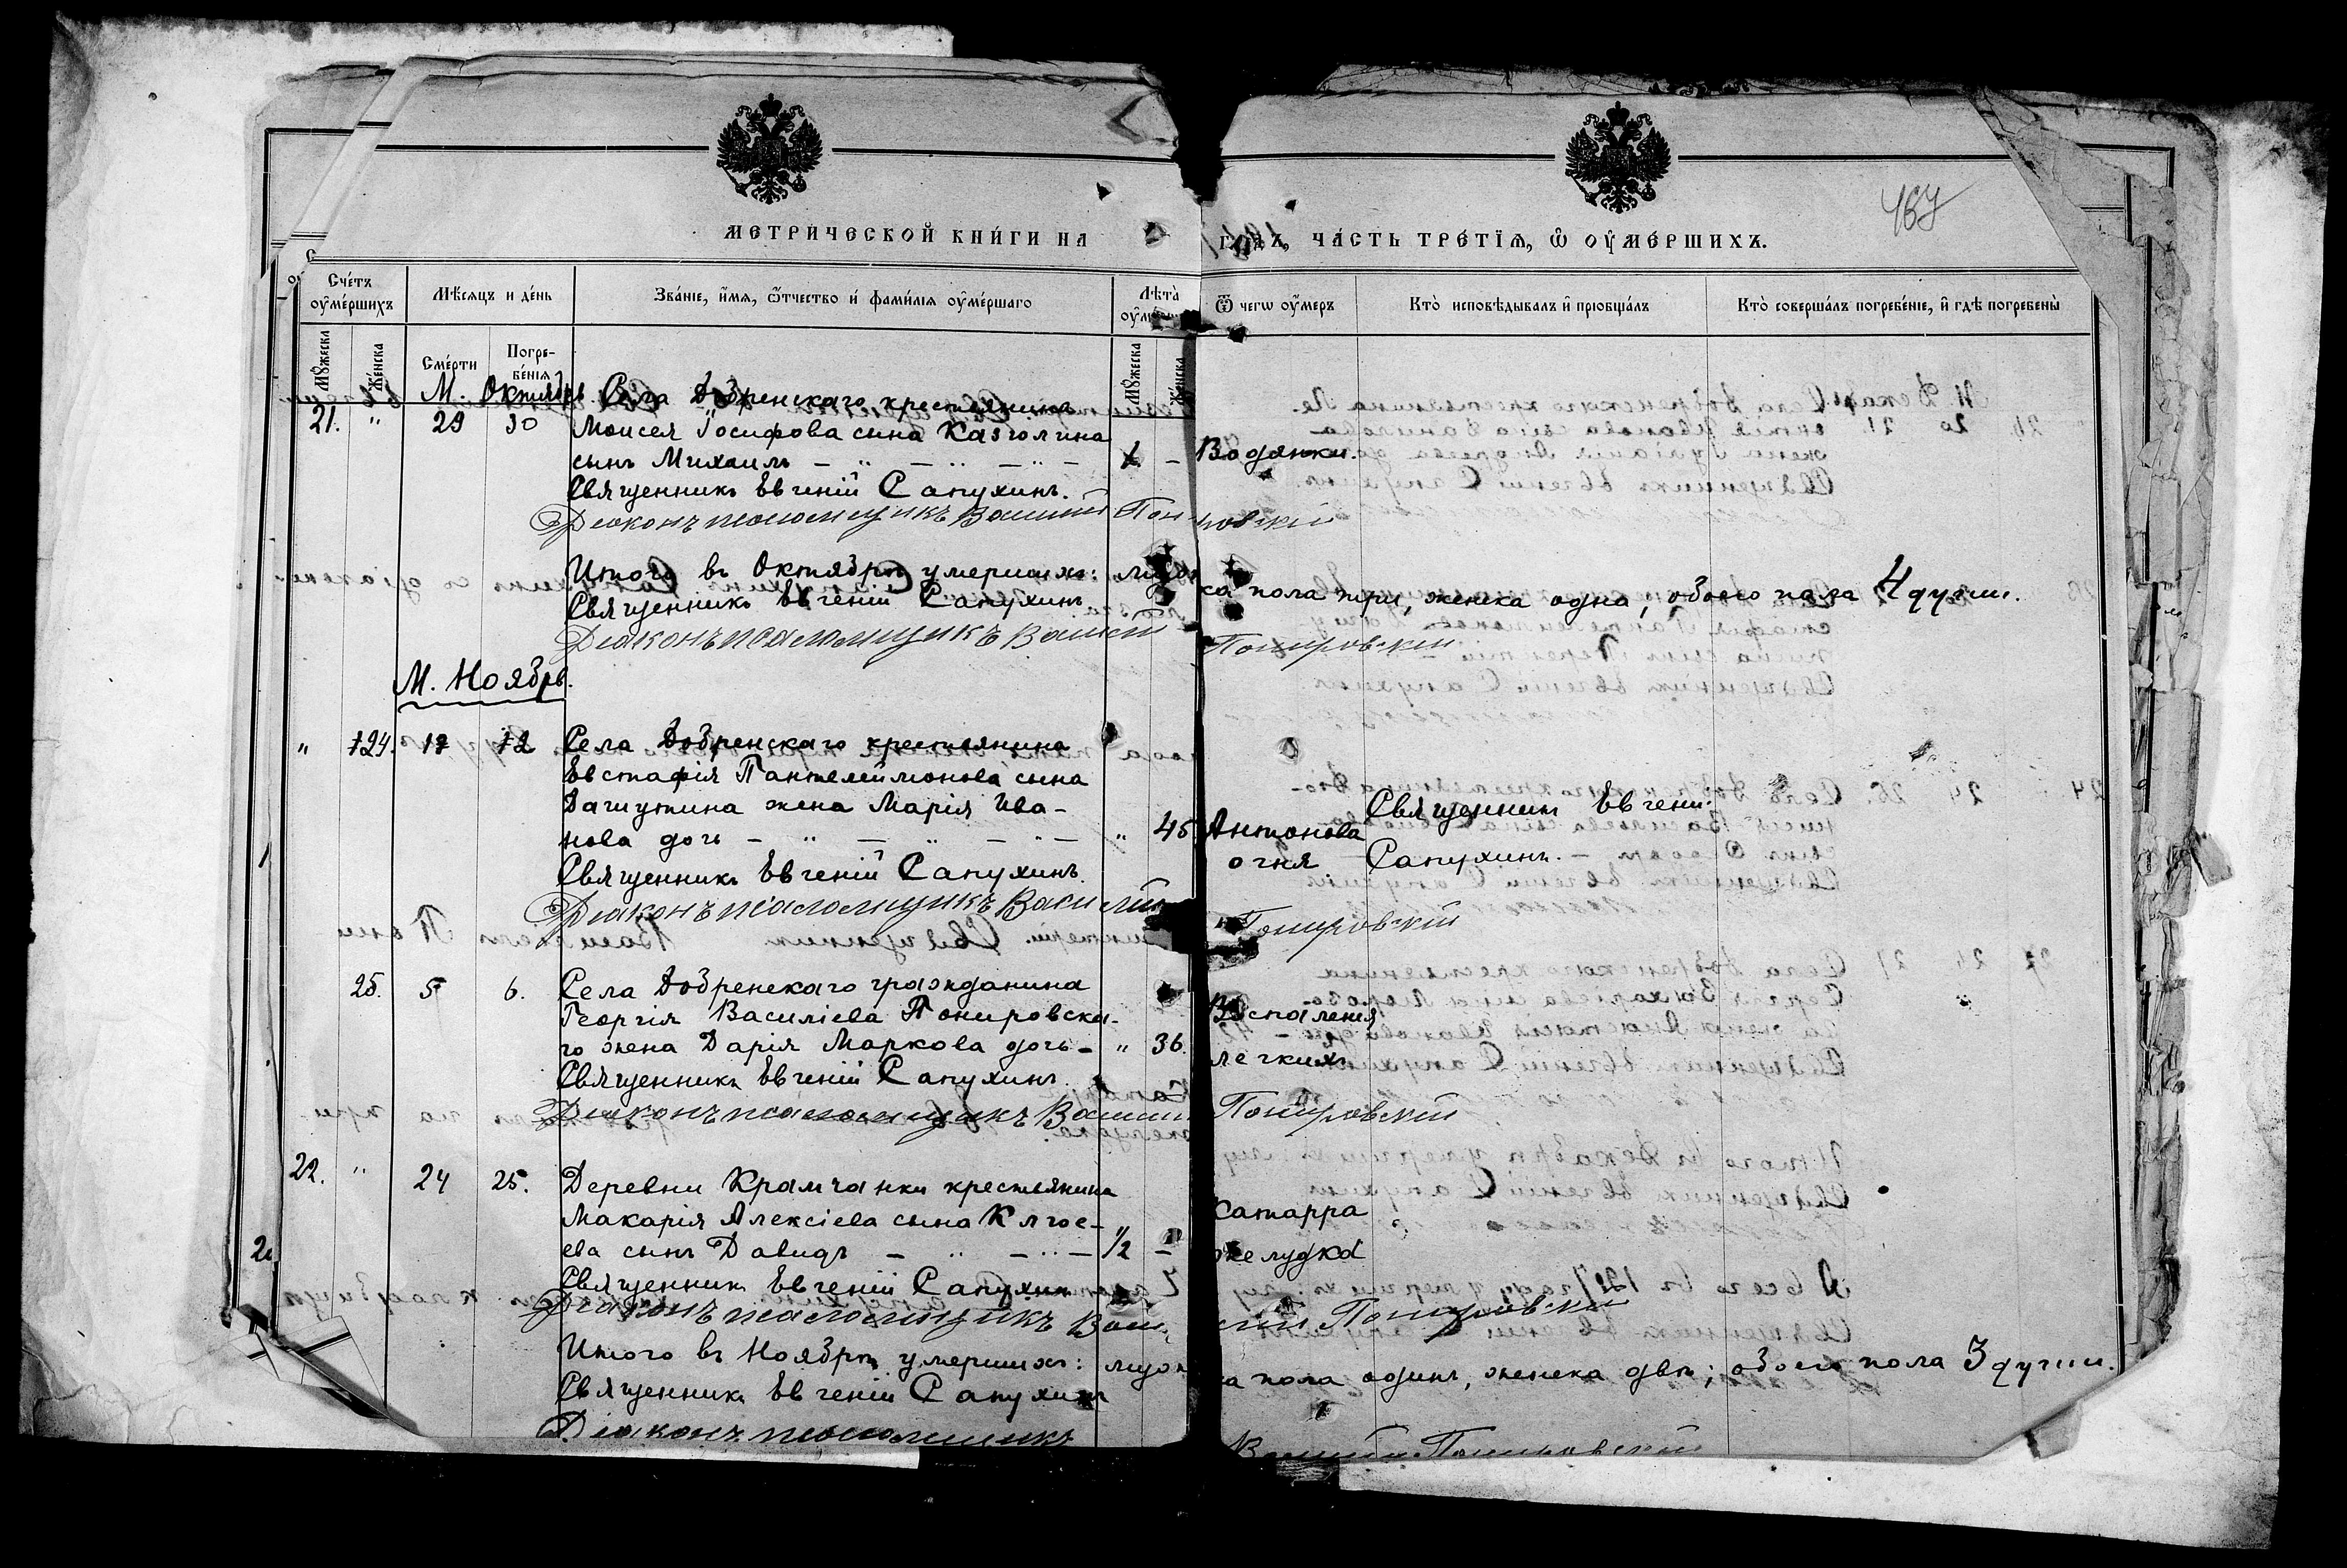 467
МЕТРИЧЕСКОЙ КНИ́ГИ НА
ГОДЪ, ЧА́СТЬ ТРЕ́ТІѦ, Ѽ ОУ҆МЕ́РШИХЪ.
Сче́тъ оу҆ме́ршихъ
Мѣ́сѧцъ и де́нь
Зва́ніе, и҆́мѧ, ѻ҆́тчество и҆ фами́лїѧ оу҆ме́ршаго
Лѣ́та̀
Ѿ чегѡ оу҆́меръ
Кто̀ исповѣ́дывалъ и҆ прїобща́лъ
Кто̀ соверша́лъ погребе́нїе, и҆ гдѣ̀ погребены̀
Мꙋ́жеска
Же́нска
Сме́рти
Погре-
бе́нїѧ
Мꙋ́жеска
Же́нска
М. Октябрь
Села Добренскаго крестьянина
21. " 29 30 Моисея Іосифова сына
сынъ Михаилъ — " — " — " — 1. — Водянки.
Священникъ Евгеній Сапухинъ.
Діаконъ псаломщикъ Василій Понировскій
Итого въ Октябрѣ умершихъ: мужеска пола три, женска одна, обоего пола 4 души.
Священникъ Евгеній Сапухинъ
Діаконъ псаломщикъ Василій Понировскій
М. Ноябрь.
" 24. 12 Села Добренскаго крестьянина
Евстафія Пантелеймонова сына
жена Марія Ива-
нова дочь — " — " — " — " 45 Антонова
огня
Священникъ Евгеній
Сапухинъ.
Священникъ Евгеній Сапухинъ.
Діаконъ псаломщикъ Василій Понировскій
25. 5 6. Села Добренскаго гражданина
Георгія Василіева Понировска-
го жена Дарія Маркова дочь — " 36. Воспаленія
легкихъ
Священникъ Евгеній Сапухинъ.
Діаконъ псаломщикъ Василій Понировскій
22. " 24 25. Деревни Крамчанки крестьянина
Макарія Алексіева сына Клюе-
ева сынъ Давидъ — " — " — 1/2 — " Катарра
желудка
Священникъ Евгеній Сапухинъ
Діаконъ псаломщикъ Василій Понировскій
Итого въ Ноябрѣ умершихъ: мужеска пола одинъ, женска двѣ; обоего пола 3 души.
Священникъ Евгеній Сапухинъ
Діаконъ псаломщикъ Василій Понировскій